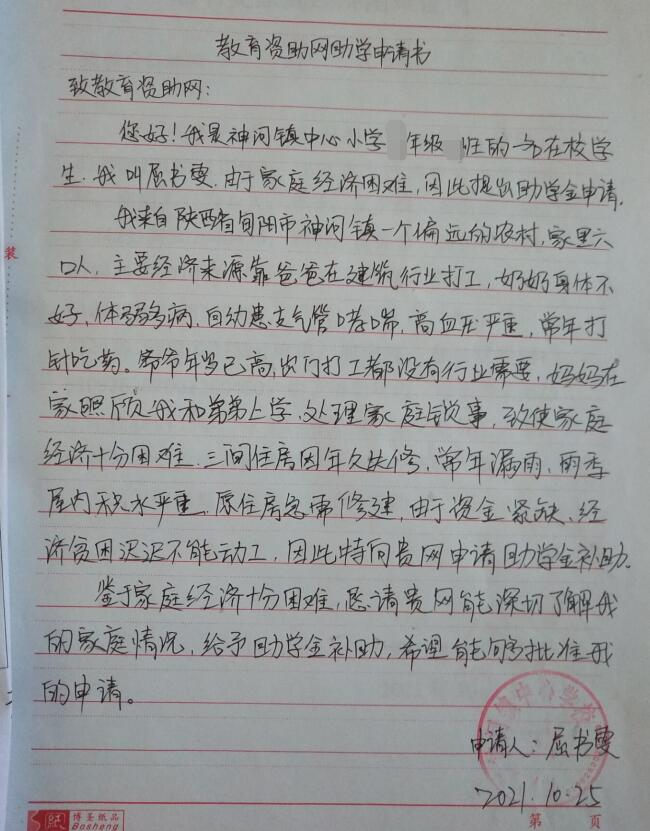 教育资助网助学申请书
致教育资助网：
您好！我是神河镇中心小学 年级 班的一名在校学
生.我叫屈书雯.由于家庭经济困难,因此提出助学金申请.
我来自陕西省旬阳市神河镇一个偏远的农村,家里六
口人.主要经济来源靠爸爸在建筑行业打工,奶奶身体不
好,体弱多病,自幼患支气管哮喘,高血压严重,常年打
针吃药。爷爷年岁已高,出门打工都没有行业需要,妈妈在
家照顾我和弟弟上学.处理家庭锁事,致使家庭
经济十分困难.三间住房因年久失修,常年漏雨,雨季
屋内积水严重.原住房急需修建,由于资金紧缺、经
济贫困迟迟不能动工,因此特向贵网申请助学金补助.
鉴于家庭经济十分困难,恳请贵网能深切了解我
的家庭情况,给予助学金补助,希望能够批准我
的申请。
申请人:屈书雯
2021.10.25
装
博圣纸品
Bosheng
第 页